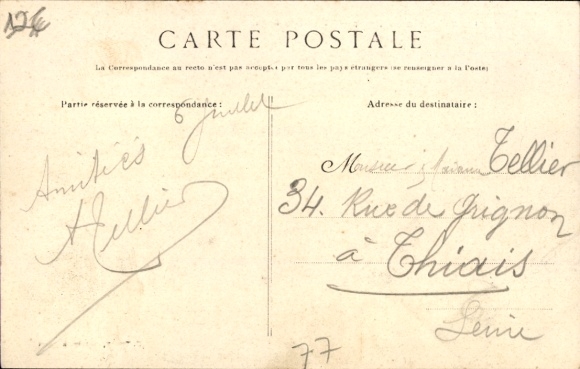 CARTE POSTALE
La Correspondance au recto n'est pas acceptée par tous les pays étrangers (se renseigner à la Poste)
Partie réservée à la correspondance :
6 juillet
Amitiés
A Tellier
Adresse du destinataire :
Monsieur Madame Tellier
34. Rue de Grignon
à Thiais
Seine
77